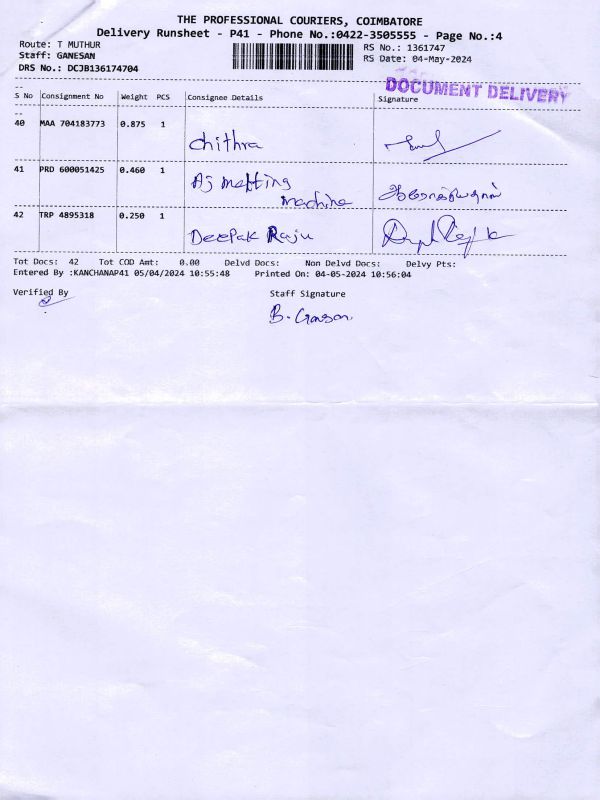 THE PROFESSIONAL COURIERS, COIMBATORE
Delivery Runsheet - P41 - Phone No.:0422-3505555 - Page No.:4
Route: T MUTHUR RS No.: 1361747
Staff: GANESAN RS Date: 04-May-2024
DRS No.: DCJB136174704
DOCUMENT DELIVERY
S No Consignment No Weight PCS Consignee Details Signature
40 MAA 704183773 0.875 1
chithra
41 PRD 600051425 0.460 1
Aj melting
machine
42 TRP 4895318 0.250 1
Deepak Raju
Tot Docs: 42 Tot COD Amt: 0.00 Delvd Docs: Non Delvd Docs: Delvy Pts:
Entered By :KANCHANAP41 05/04/2024 10:55:48 Printed On: 04-05-2024 10:56:04
Verified By Staff Signature